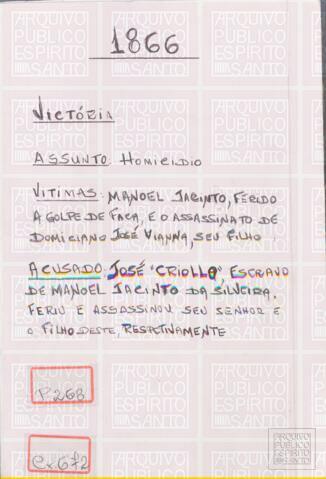 1866
VICTÓRIA
ASSUNTO: Homicídio
VITIMAS: MANOEL JACINTO, FERIDO
A GOLPE DE FACA, E O ASSASSINATO DE
DOMICIANO JOSÉ VIANNA, SEU FILHO
ACUSADO: JOSÉ "CRIOLLO", ESCRAVO
DE MANOEL JACINTO DA SILVEIRA.
FERIU E ASSASSINOU SEU SENHOR E
O FILHO DESTE, RESPCTIVAMENTE
P268
Cx.672
ARQUIVO
PÚBLICO
ESPÍRITO
SANTO